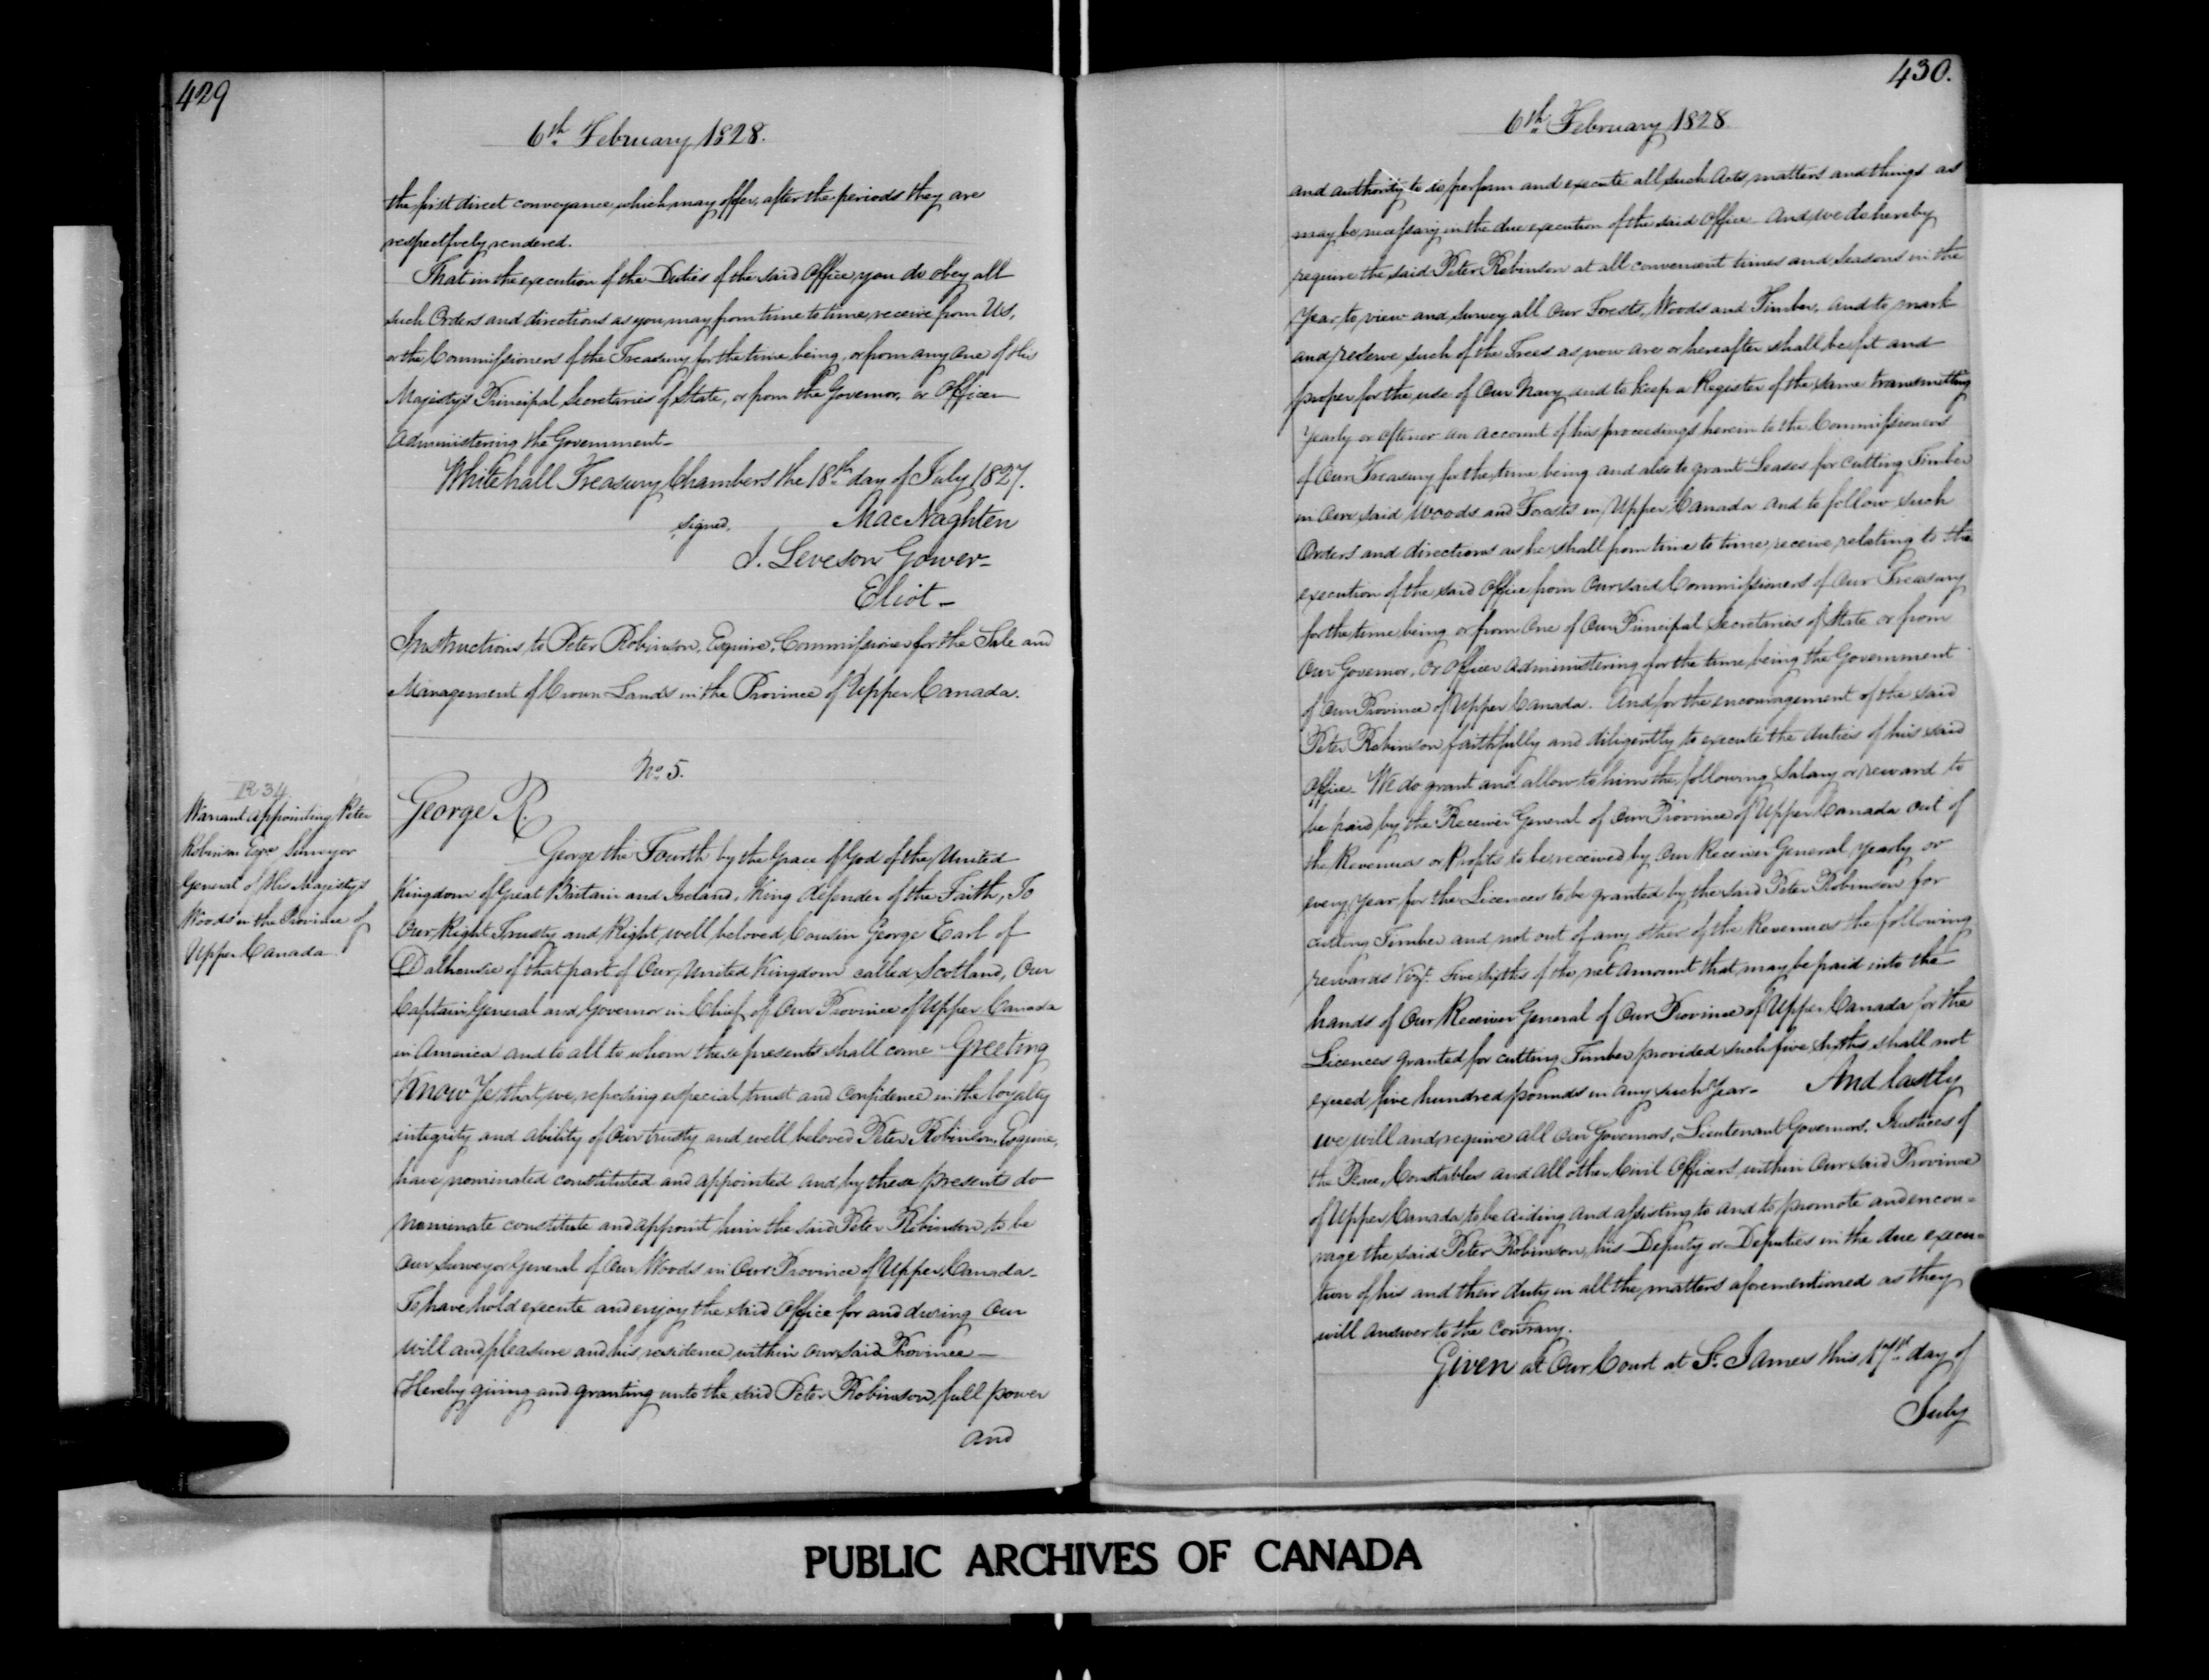 429
6th February 1828.
the first direct conveyance which may offer, after the periods they are
respectively rendered.
That in the execution of the Duties of the said Office, you do obey all
such Orders and directions as you may from time to time, receive from Us,
or the Commissioners of the Treasury for the time being, or from any One of His
Majesty's Principal Secretaries of State, or from the Governor, or Officer
Administering the Government—
Whitehall Treasury Chambers the 18th day of July 1827.
signed, MacNaghten
J. Leveson Gower—
Eliot—
Instructions to Peter Robinson, Esquire, Commissioner for the Sale and
Management of Crown Lands in the Province of Upper Canada.
No. 5.
R 34
Warrant appointing Peter
Robinson Esqre Surveyor
General of His Majesty's
Woods in the Province of
Upper Canada
George R.
George the Fourth by the Grace of God of the United
Kingdom of Great Britain and Ireland, King defender of the Faith, To
Our Right Trusty and Right well beloved Cousin George Earl of
Dalhousie of that part of Our United Kingdom called Scotland, Our
Captain General and Governor in Chief of Our Province of Upper Canada
in America and to all to whom these presents shall come Greeting
Know Ye that we, reposing especial trust and confidence in the loyalty
integrity and ability of Our trusty and well beloved Peter Robinson, Esquire,
have nominated constituted and appointed and by these presents do
nominate constitute and appoint him the said Peter Robinson to be
Our Surveyor General of Our Woods in Our Province of Upper Canada—
To have hold execute and enjoy the said Office for and during Our
will and pleasure and his residence within Our said Province—
Hereby giving and granting unto the said Peter Robinson, full power
and
430.
6th February 1828
and authority to do perform and execute all such Acts, matters and things as
may be necessary in the due execution of the said Office And we do hereby
require the said Peter Robinson at all convenient times and seasons in the
Year, to view and survey all Our Forests, Woods and Timber, and to mark
and reserve such of the Trees as now are or hereafter shall be fit and
proper for the use of Our Navy and to keep a Register of the same transmitting
Yearly or oftener an account of his proceedings herein to the Commissioners
of Our Treasury for the time being and also to grant Leases for cutting Timber
in Our said Woods and Forests in Upper Canada and to follow such
Orders and directions as he shall from time to time, receive relating to the
execution of the said Office from Our said Commissioners of Our Treasury
for the time being or from One of Our Principal Secretaries of State or from
Our Governor, or Officer Administering for the time being the Government
of Our Province of Upper Canada. And for the encouragement of the said
Peter Robinson faithfully and diligently to execute the duties of his said
Office. We do grant and allow to him the following Salary or reward to
be paid by the Receiver General of Our Province of Upper Canada out of
the Revenues or Profits to be received by Our Receiver General, yearly or
every Year for the Licences to be granted by the said Peter Robinson for
cutting Timber and not out of any other of the Revenues the following
rewards Vizt. Five sixths of the net Amount that may be paid into the
hands of Our Receiver General of Our Province of Upper Canada for the
Licences granted for cutting Timber provided such five sixths shall not
exceed five hundred pounds in any such Year— And lastly
we will and require all Our Governors, Lieutenant Governors, Justices of
the Peace, Constables and all other Civil Officers within Our said Province
of Upper Canada to be aiding and assisting to and to promote and encou=
rage the said Peter Robinson, his Deputy or Deputies in the due execu=
tion of his and their duty in all the matters aforementioned as they
will answer to the contrary.
Given at Our Court at St. James this 17th day of
July
PUBLIC ARCHIVES OF CANADA